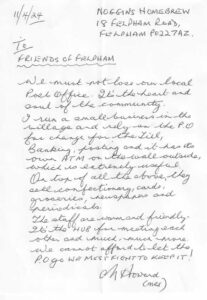 11/4/24
NOGGINS HOMEBREW
18 FELPHAM ROAD,
FELPHAM PO22 7AZ.
To
FRIENDS OF FELPHAM
We must not lose our local
Post Office. It's the heart and
soul of the community.
I run a small business in the
village and rely on the P.O
for change for the till,
Banking, posting and it has its
own ATM on the wall outside,
which is extremely useful.
On top of all the above, they
sell confectionery, cards,
groceries, newspapers and
periodicals.
The staff are warm and friendly.
It's the HUB for meeting each
other and much, much more.
We cannot afford to let the
P.O go WE MUST FIGHT TO KEEP IT!
Howard
(Mrs)